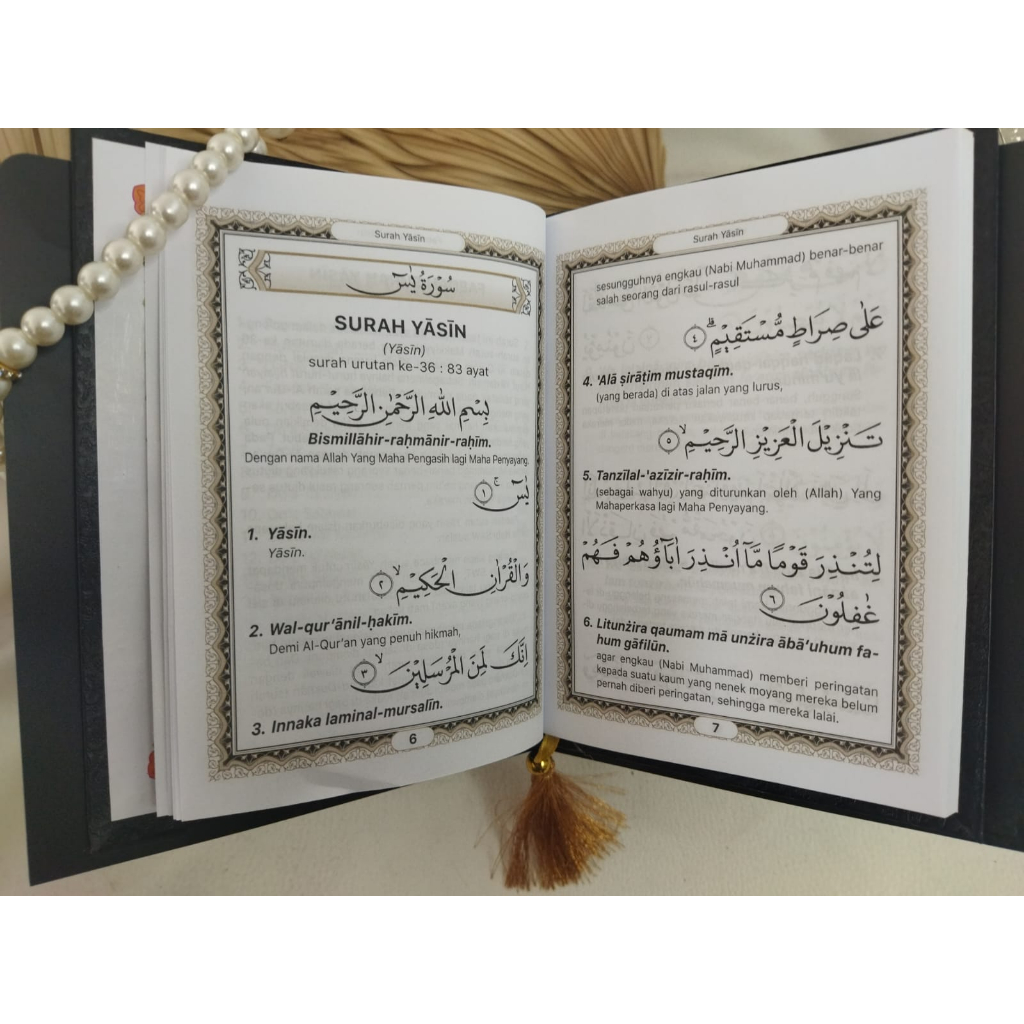 Surah Yāsīn
سُوْرَةُ يٰسۤ
SURAH YĀSĪN
(Yāsīn)
surah urutan ke-36 : 83 ayat
بِسْمِ اللّٰهِ الرَّحْمٰنِ الرَّحِيْمِ
Bismillāhir-raḥmānir-raḥīm.
Dengan nama Allah Yang Maha Pengasih lagi Maha Penyayang.
يٰسۤ ۚ ١
1. Yāsīn.
Yāsīn.
وَالْقُرْاٰنِ الْحَكِيْمِۙ ٢
2. Wal-qur‘ānil-ḥakīm.
Demi Al-Qur'an yang penuh hikmah,
اِنَّكَ لَمِنَ الْمُرْسَلِيْنَۙ ٣
3. Innaka laminal-mursalīn.
6
Surah Yāsīn
sesungguhnya engkau (Nabi Muhammad) benar-benar
salah seorang dari rasul-rasul
عَلٰى صِرَاطٍ مُّسْتَقِيْمٍۗ ٤
4. 'Alā ṣirāṭim mustaqīm.
(yang berada) di atas jalan yang lurus,
تَنْزِيْلَ الْعَزِيْزِ الرَّحِيْمِۙ ٥
5. Tanzīlal-'azīzir-raḥīm.
(sebagai wahyu) yang diturunkan oleh (Allah) Yang
Mahaperkasa lagi Maha Penyayang.
لِتُنْذِرَ قَوْمًا مَّآ اُنْذِرَ اٰبَاۤؤُهُمْ فَهُمْ
غٰفِلُوْنَ ٦
6. Litunżira qaumam mā unżira ābā‘uhum fa-
hum gāfilūn.
agar engkau (Nabi Muhammad) memberi peringatan
kepada suatu kaum yang nenek moyang mereka belum
pernah diberi peringatan, sehingga mereka lalai.
7